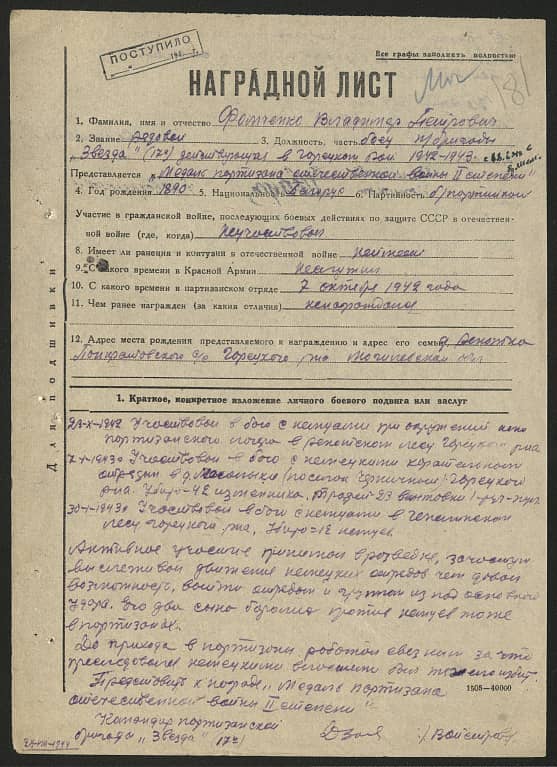 ПОСТУПИЛО
Все графы заполнять полностью
НАГРАДНОЙ ЛИСТ
1. Фамилия, имя и отчество Владимир Петрович
2. Звание Рядовой 3. Должность, часть боец п/бригады
"Звезда" (17г) действующая в Горецком р-оне 1942-1943г.
Представляется "Медаль партизана отечественной войны II степени"
4. Год рождения 1890 5. Национальность Беларус 6. Партийность б/партийный
Участие в гражданской войне, последующих боевых действиях по защите СССР в отечествен-
ной войне (где, когда) Неучаствовал
8. Имеет ли ранения и контузии в отечественной войне неимеет
9. С какого времени в Красной Армии неслужил
10. С какого времени в партизанском отряде 7 октября 1942 года
11. Чем ранее награжден (за какия отличия) ненаграждался
12. Адрес места рождения представляемого к награждению и адрес его семьи д.
с/с Горецкого р-на Могилевской обл
Для подшивки
1. Краткое, конкретное изложение личного боевого подвига или заслуг
23-X-1942 Участвовал в бою с немцами при окружении
партизанского лагеря в лесу Горецкого р-на
1943г Участвовал в бою с немецкими карательным
отрядом в д. (поселок) Горецкого
р-на. Убито-42 изменника, Трофей-23 винтовки
30-1943г Участвовал в бою с немцами в
лесу Горецкого р-на, Убито=12 немцев.
Активное участие принимал в разведке, зачастую
выслеживал движение немецких отрядов чем давал
возможность выйти отрядам и группам из под основного
удара. Его два сына боролись против немцев тоже
в партизанах.
До прихода в партизаны работал за что
преследовался немецкими властями был избит.
Представить к награде "Медаль партизана
отечественной войны II степени"
1508-40000
Командир партизанской
бригады "Звезда" (17г)